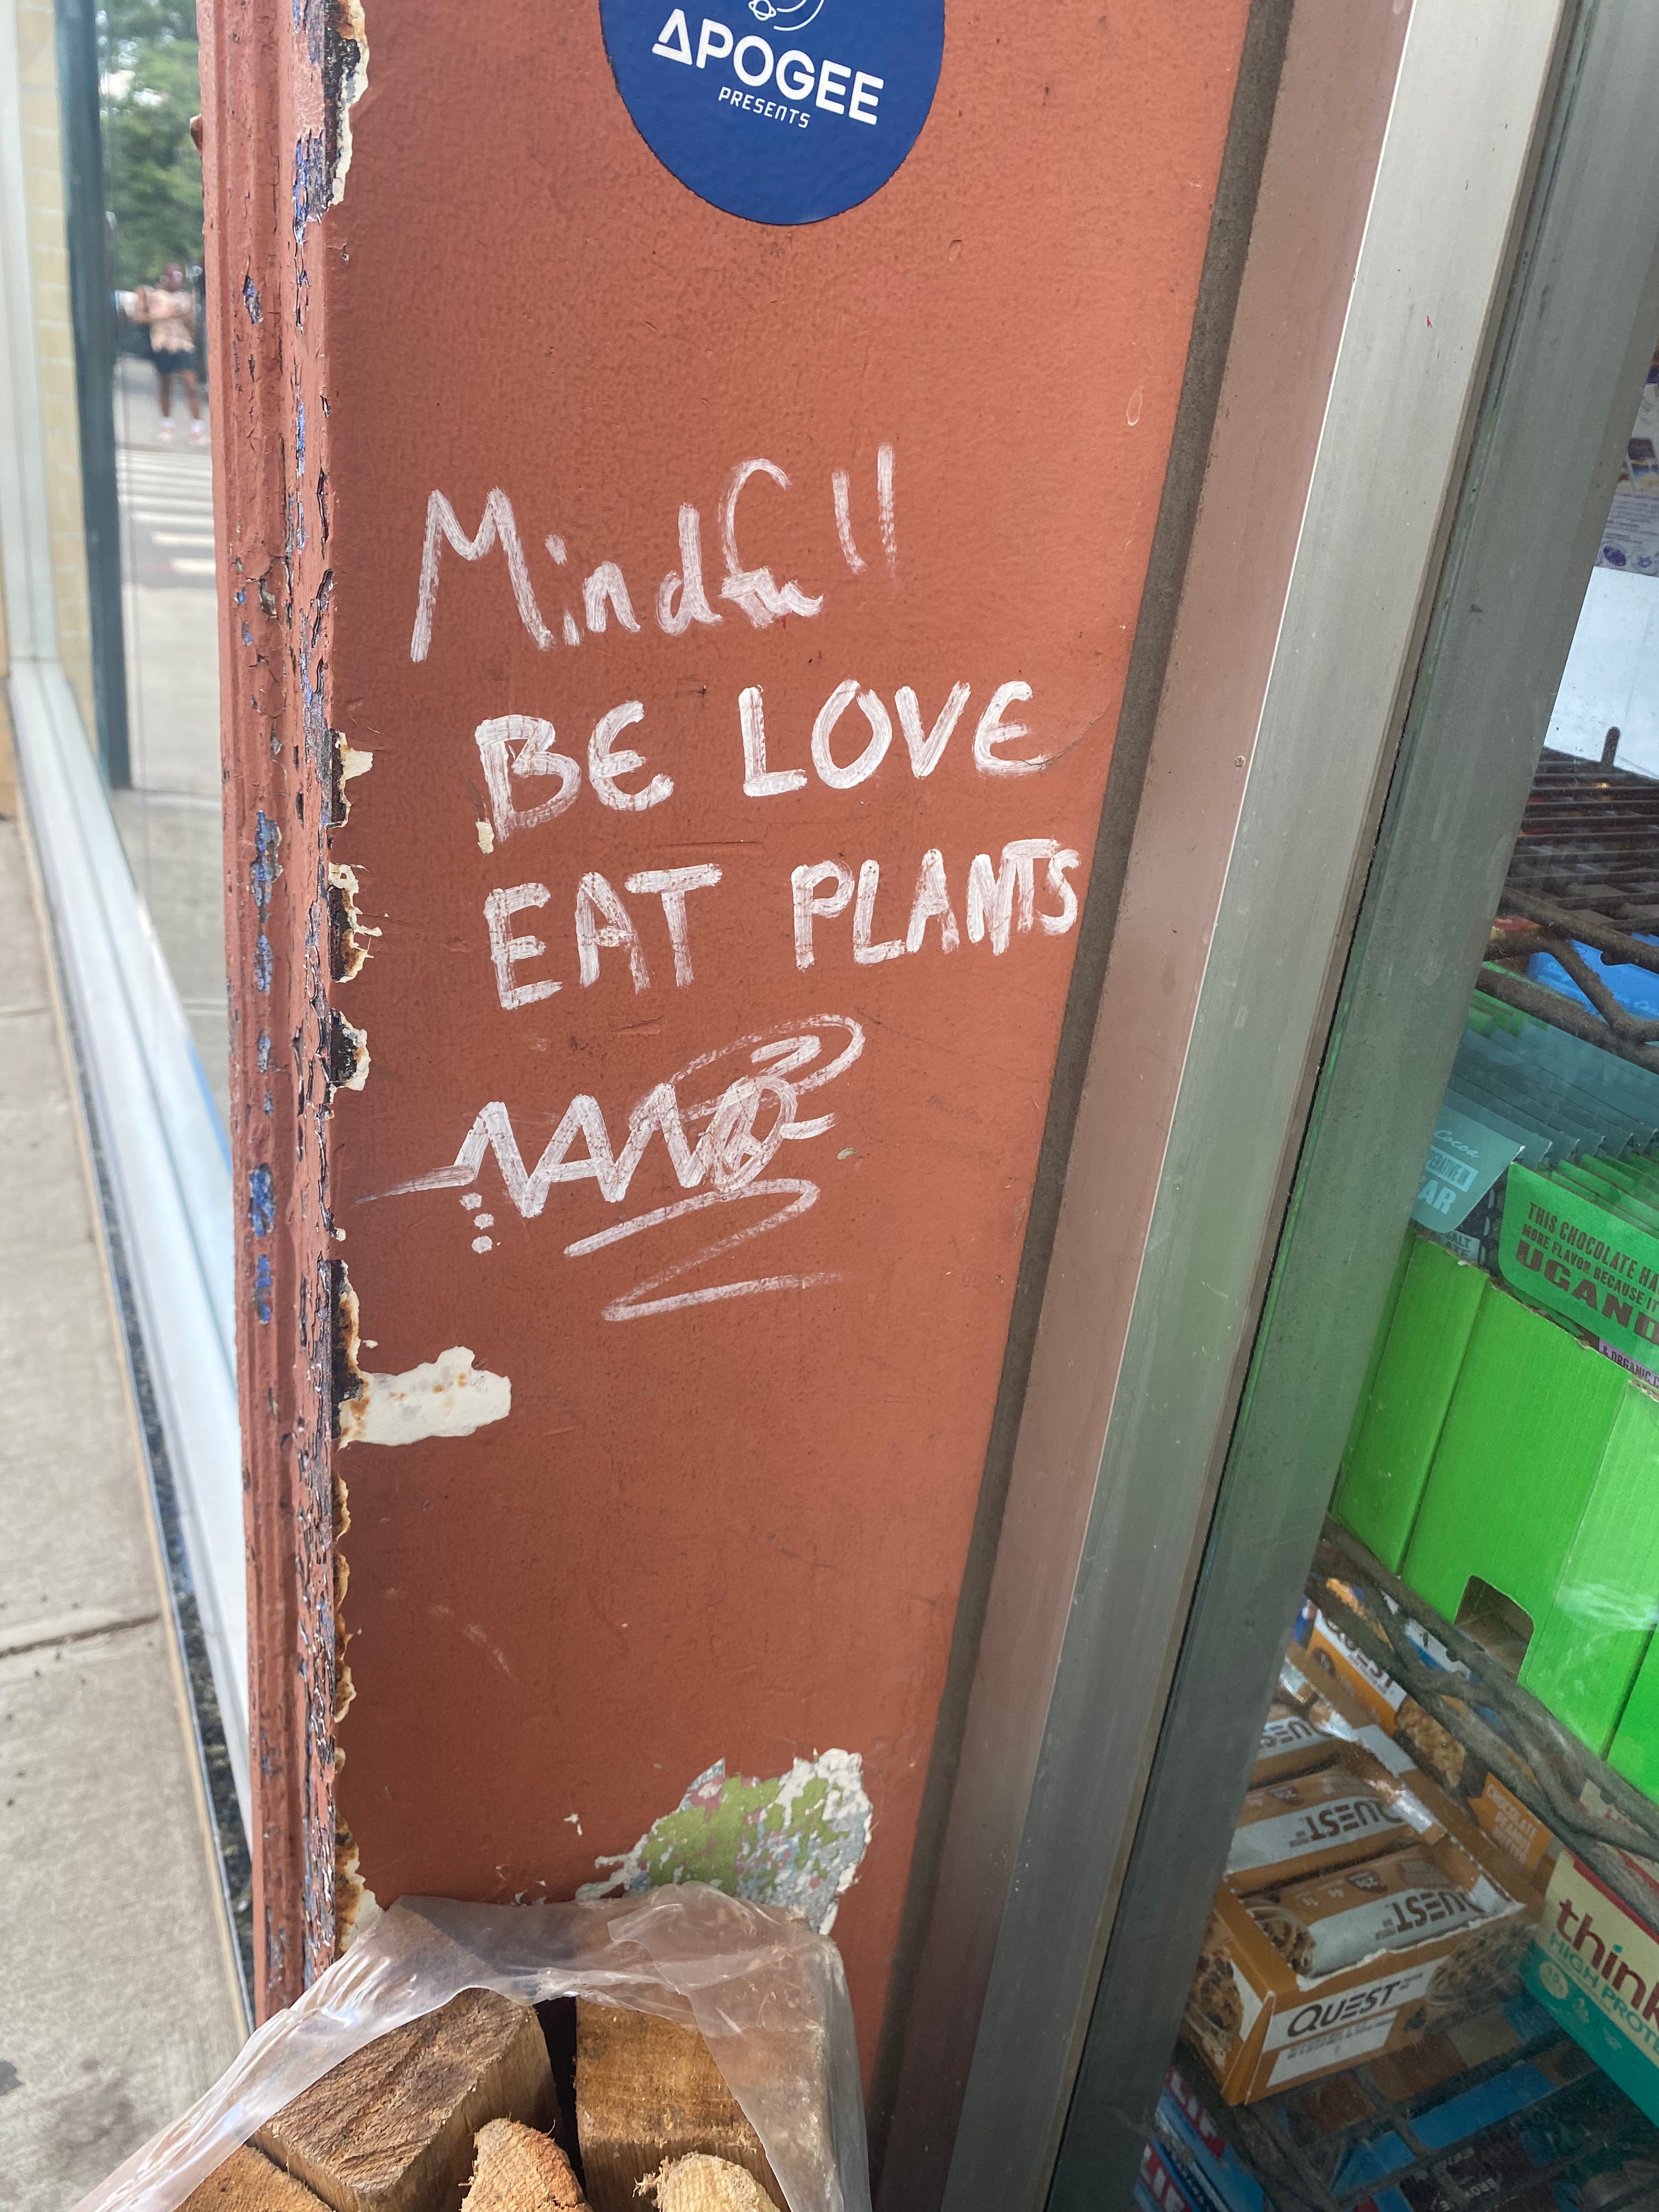 APOGEE
PRESENTS
Mindfull
BE LOVE
EAT PLANTS
Cocoa
THIS CHOCOLATE HA
MORE FLAVOR BECAUSE IT
UGAND
& ORGANIC C
QUEST
QUEST
QUEST
QUEST
think
HIGH PROTE